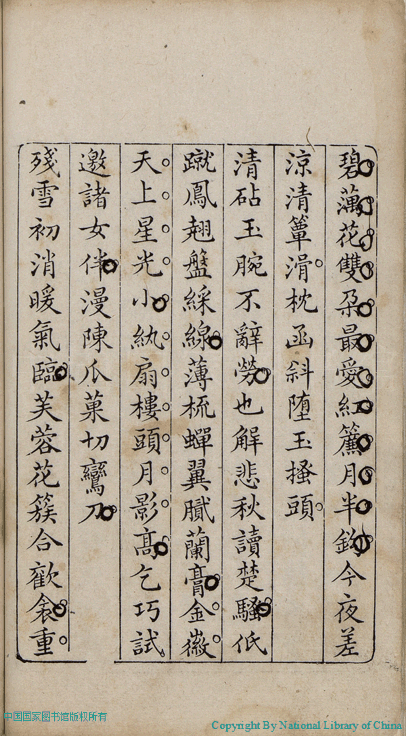 碧蕅花雙朶最愛紅簾月半鈎今夜差
涼清簟滑枕函斜墮玉搔頭
清砧玉腕不辭勞也解悲秋讀楚騷低
蹴鳳翹盤綵線薄梳蟬翼膩蘭膏金徽
天上星光小紈扇樓頭月影髙乞巧試
邀諸女伴漫陳瓜菓切鸞刀
殘雪初消暖氣臨芙蓉花簇合歡衾重
中国国家图书馆版权所有
Copyright By National Library of China